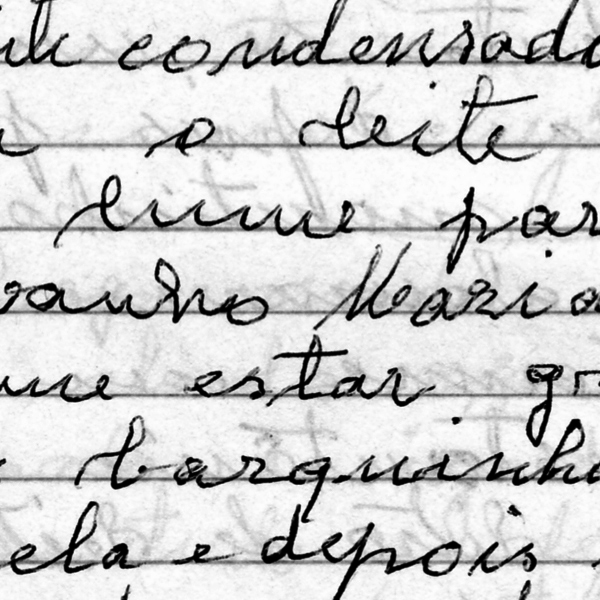 condensado
o leite
lume par
banho Maria
me estar gr
barquinho
ela e depois